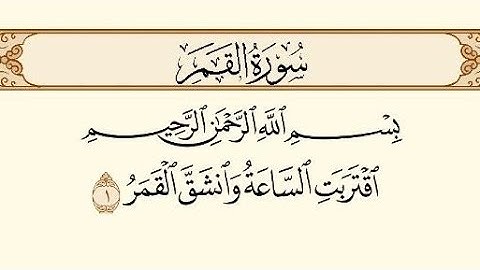 سُورَةُ الْقَمَرِ
بِسْمِ اللَّهِ الرَّحْمَٰنِ الرَّحِيمِ
اقْتَرَبَتِ السَّاعَةُ وَانشَقَّ الْقَمَرُ ١